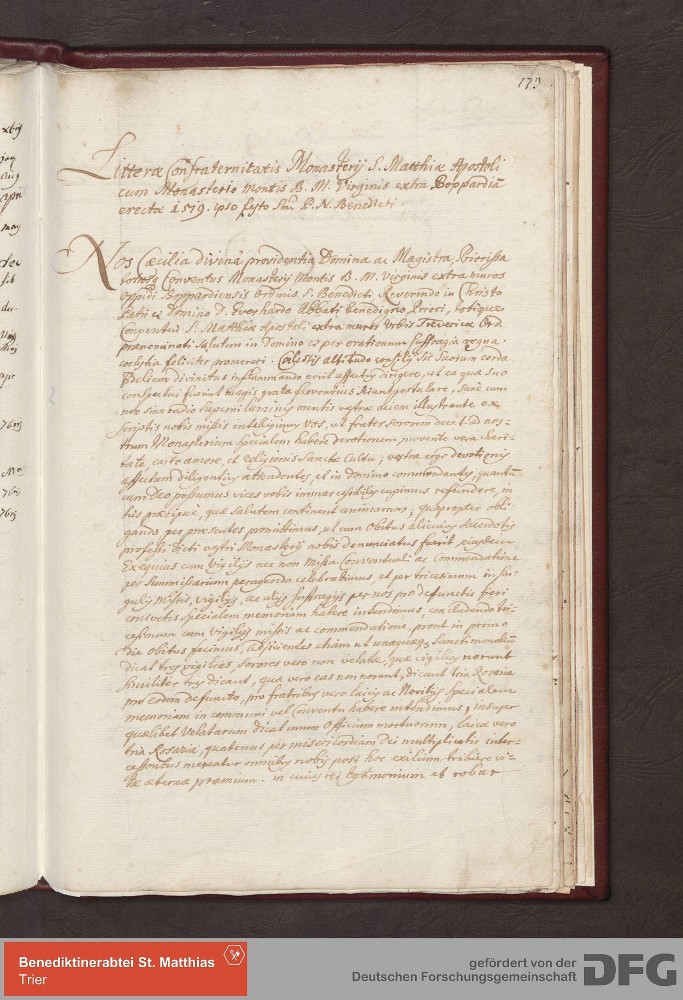 173
Litteræ Confraternitatis Monasterij S. Matthiæ Apostoli
cum Monasterio Montis B. M. Virginis extra Boppardiā
erectæ 1519. ipso festo Sm̄i P. N. Benedicti.
Nos Cæcilia divinâ providentiâ Domina ac Magistra, Priorissa
totusq Conventus Monasterij Montis B. M. Virginis extra muros
oppidi Boppardiensis Ordinis S. Benedicti Reverendo in Christo
Patri et Domino D. Everhardo Abbati benedigno, Priori, totique
Conventui S. Matthiæ Apostoli extra muros Urbis Trevericæ Ord.
prænominati Salutem in Domino et per orationum suffragia regna
cœlestia feliciter promereri. Cælestis altitudo consilij sic suorum corda
Fidelium divinitus inflammando novit affectus dirigere, ut ea quæ suo
conspectui fuerint magis grata ferventius studeant postulare, sane cum
nos sine radio superni luminis mentis vestræ aciem illustrante ex
scriptis nobis missis intelligimus Vos, ut frater sororem decet ad nos-
trum Monasterium specialem habere devotionem, juvente vera chari-
tate, casto amore, et religionis sanctæ cultu; vestræ ergo devotionis
affectum diligentius attendentes, et in domino commendantes, quantū
cum Deo possumus vices vobis immarcessibiles cupimus refundere, in
his præcipuè, quæ salutem continent animarum; quapropter obli-
gando per præsentes promittimus, ut cum obitus alicuius sacerdotis
professi dicti vestri Monasterij nobis denunciatus fuerit, ejusdem
Exequias cum Vigilijs nec non Missa Conventuali ac Commendatione
per Summissarium peragenda celebrabimus, et per tricesimum in sin-
gulis missis, vigilijs, ac alijs suffragijs per nos pro defunctis fieri
consuetis specialem memoriam habere intendimus, concludendo tri-
cesimum cum vigilijs missis ac commendatione, prout in primo
die obitus facimus, adjicientes etiam ut unaquæq Sanctimonialiū
dicat tres vigilias, sorores vero non velatæ, quæ vigilias norunt
similiter tres dicant, quæ vero eas non norunt, dicant tria Rosaria
pro eodem defuncto, pro fratribus vero laicis ac Novitijs specialem
memoriam in communi vel Conventu habere intendimus; insuper
quælibet Velatarum dicat unum Officium mortuorum, laicæ vero
tria Rosaria, quatenus per misericordiam Dei multiplicatis inter-
cessoribus mereatur omnibus nobis post hoc exilium tribuere vi-
tæ æternæ præmium. in cuius rei testimonium et robur
Benediktinerabtei St. Matthias
Trier
gefördert von der
Deutschen Forschungsgemeinschaft
DFG